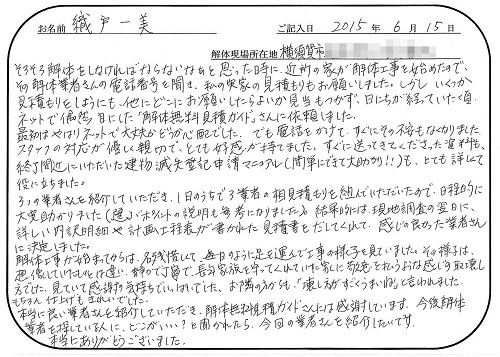 お名前 織戸一美 ご記入日 2015年 6月 15日
解体現場所在地 横須賀市
そろそろ解体をしなければならないなぁと思った時に、近所の家が解体工事を始めたので、
その解体業者さんの電話番号を聞き、私の実家の見積もりもお願いしました。しかし いくつか
見積もりをしようにも、他にどこにお願いしたらよいか見当もつかず、日にちが経っていた頃
ネットで偶然目にした「解体無料見積ガイド」さんに依頼しました。
最初はやはりネットで大丈夫かどうか心配でした。でも電話をかけて、すぐにその不安もなくなりました
スタッフの対応が優しく親切で、とても好感が持てました。すぐに送ってきてくださった資料も、
終了間近にいただいた建物滅失登記申請マニュアル(簡単にできて大助かり!!)も、とても詳しくて
役に立ちました。
3つの業者さんを紹介していただき、1日のうちで3業者の相見積もりを組んでいただいたので、日程的に
大変助かりました(選ぶポイントの説明も参考になりました)。結果的には、現地調査の翌日に、
詳しい内訳明細や計画工程表が書かれた見積書をだしてくれて、感じの良かった業者さん
に決定しました。
解体工事が始まってからは、名残惜しくて、毎日のように足を運んで工事の様子を見ていました。その様子は、
想像していたのとは違い、静かで丁寧で、長年家族を守ってくれていた家に敬意を払うような感じの取壊し
方でした。見ていて感謝の気持ちでいっぱいでした。お隣の方からも、「凄い方がすごくうまいね」と言われました
もちろん 仕上げもきれいでした。
本当に良い業者さんを紹介していただき、解体無料見積ガイドさんには感謝しています。今後解体
業者を探している人に、どこがいい?と聞かれたら、今回の業者さんを紹介したいです。
本当にありがとうございました。